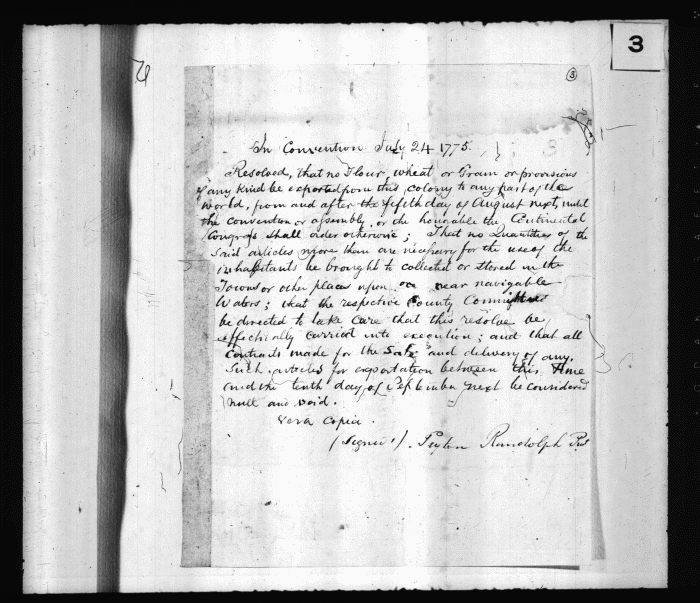 3
3
In Convention July 24 1775.
Resolved, that no Flour, wheat or Grain or provisions
of any kind be exported from this colony to any part of the
World, from and after the fifth day of August next, until
the convention or assembly, or the honorable the Continental
Congress shall order otherwise; That no Quantities of the
Said articles more than are necessary for the use of the
inhabitants be brought to collected or stored in the
Towns or other places upon or near navigable
Waters; that the respective County Committees
be directed to take care that this resolve be
effectually carried into execution; and that all
Contracts made for the Sale and delivery of any
Such articles for exportation between this time
and the tenth day of September next be considered
null and void.
Vera Copia.
(Signed) Peyton Randolph Prest